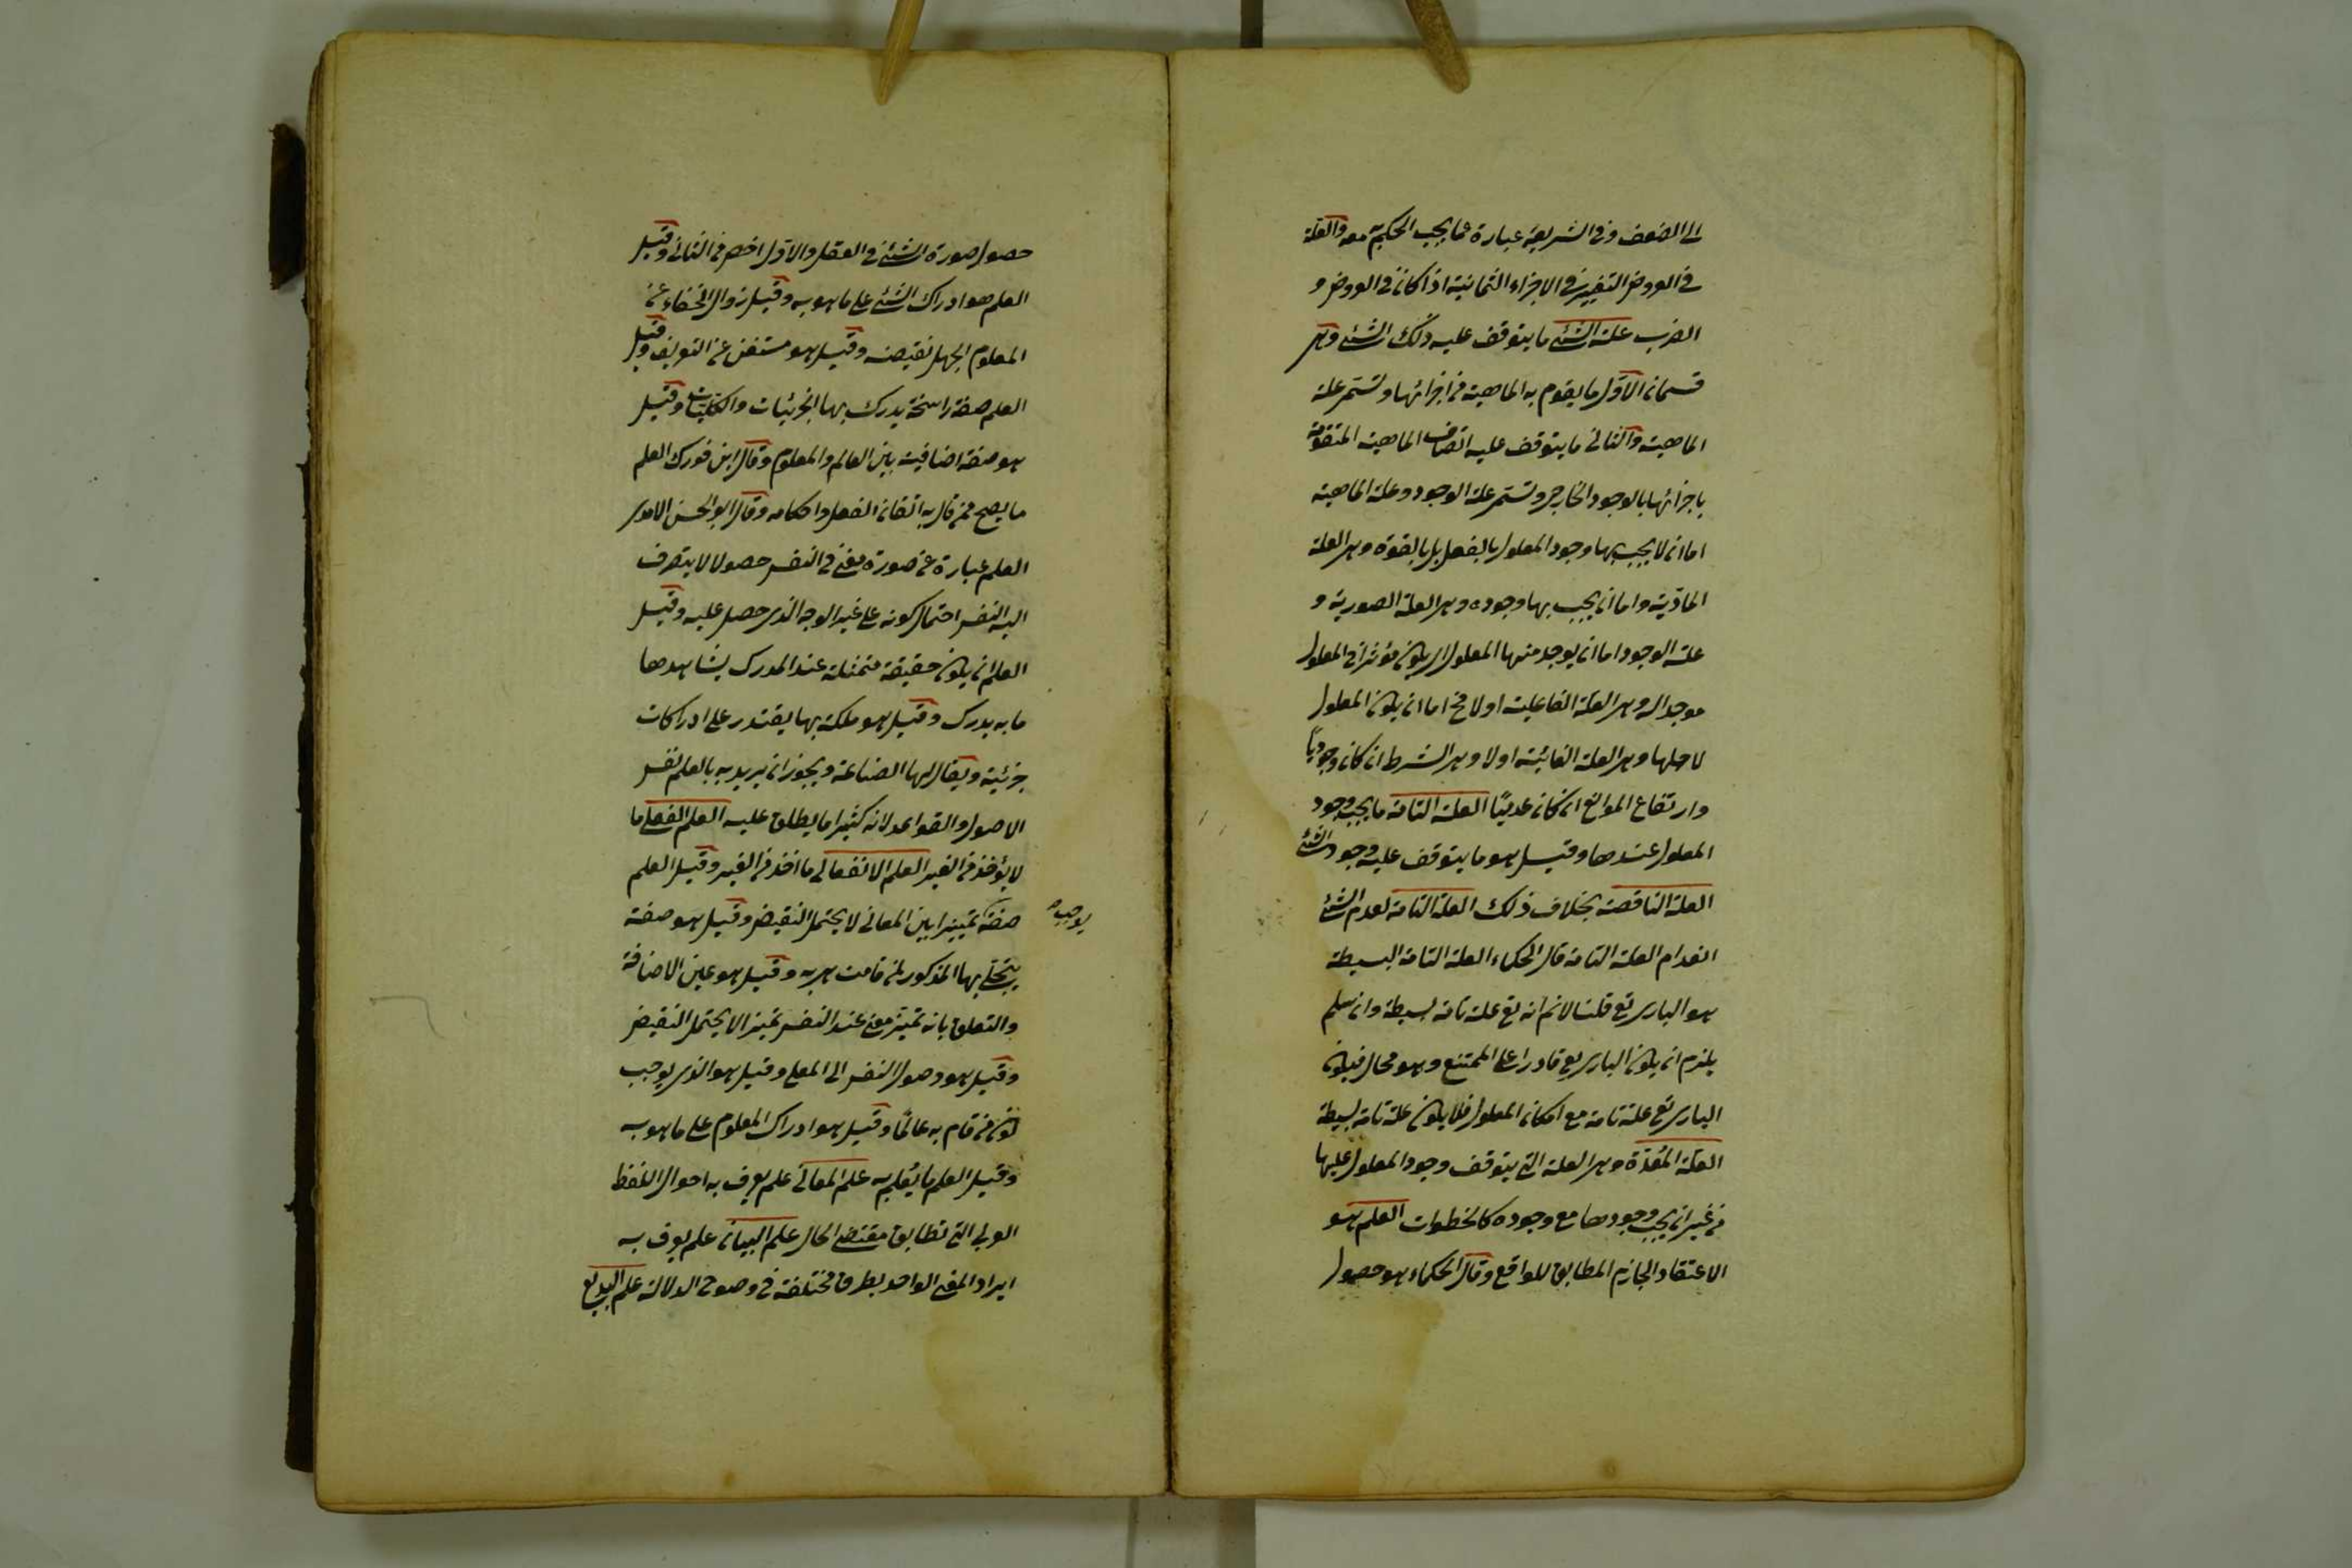 الى الضعف وفى الشريعة عبارة عما يجب الحكم به معه والعلة
فى العروض التغيير فى الاجزاء الثمانية اذا كان فى العروض و
الضرب علة الشئ ما يتوقف عليه ذلك الشئ وهى
قسمان الاول ما يقوم به الماهية من اجزائها وتسمى علة
الماهية والثانى ما يتوقف عليه اتصاف الماهية المتقومة
باجزائها بالوجود الخارجى وتسمى علة الوجود وعلة الماهية
اما ان لا يجب بها وجود المعلول بالفعل بل بالقوة وهى العلة
المادية واما ان يجب بها وجوده وهى العلة الصورية و
علة الوجود اما ان يوجد منها المعلول اى يكون مؤثرا فى المعلول
موجدا له وهى العلة الفاعلية اولا فح اما ان يكون المعلول
لاجلها وهى العلة الغائية اولا وهى الشرط ان كان وجوديا
وارتفاع الموانع ان كان عدميا العلة التامة ما يجب وجود
المعلول عندها وقيل هو ما يتوقف عليه وجود الشئ
العلة الناقصة بخلاف ذلك العلة التامة لعدم الشئ
انعدام العلة التامة قال الحكماء العلة التامة البسيطة
هو البارى تع قلنا لانم انه تع علة تامة بسيطة وان سلم
يلزم ان يكون البارى تع قادرا على الممتنع وهو محال فيكون
البارى تع علة تامة مع امكان المعلول فلا يكون علة تامة بسيطة
العلة المعدة وهى العلة التى يتوقف وجود المعلول عليها
من غير ان يجب وجودها مع وجوده كالخطوات العلم هو
الاعتقاد الجازم المطابق للواقع وقال الحكماء هو حصول
حصول صورة الشئ فى العقل والاول اخص من الثانى وقيل
العلم هو ادراك الشئ على ما هو به وقيل زوال الخفاء عن
المعلوم الجهل نقيضه وقيل هو مستغن عن التعريف وقيل
العلم صفة راسخة يدرك بها الجزئيات والكليات وقيل
هو صفة اضافية بين العالم والمعلوم وقال ابن فورك العلم
ما يصح ممن قال به اتقان الفعل واحكامه وقال ابو الحسن الامدى
العلم عبارة عن صورة معنى فى النفس حصولا لا يتطرف
اليه النفس احتمال كونه على غير الوجه الذى حصل عليه وقيل
العلم ان يكون حقيقة متمثلة عند المدرك يشاهدها
ما به يدرك وقيل هو ملكة بها يقتدر على ادراكات
جزئية ويقال لها الصناعة ويجوز ان يريد به بالعلم نفس
الاصول والقواعد لانه كثيرا ما يطلق عليه العلم الفعلى ما
لا يؤخذ من الغير العلم الانفعالى ما اخذ من الغير وقيل العلم
صفة تمييزا بين المعانى لا يحتمل النقيض وقيل هو صفة
يوجب صح
يتجلى بها المذكور لمن قامت هى به وقيل هو عين الاضافة
والتعلق بانه تميز معنى عند النفس تميزا لا يحتمل النقيض
وقيل هو وصول النفس الى المعنى وقيل هو الذى يوجب
كون من قام به عالما وقيل هو ادراك المعلوم على ما هو به
وقيل العلم ما يعلم به علم المعانى علم يعرف به احوال اللفظ
العربى التى تطابق مقتضى الحال علم البيان علم يعرف به
ايراد المعنى الواحد بطرق مختلفة فى وضوح الدلالة علم البديع